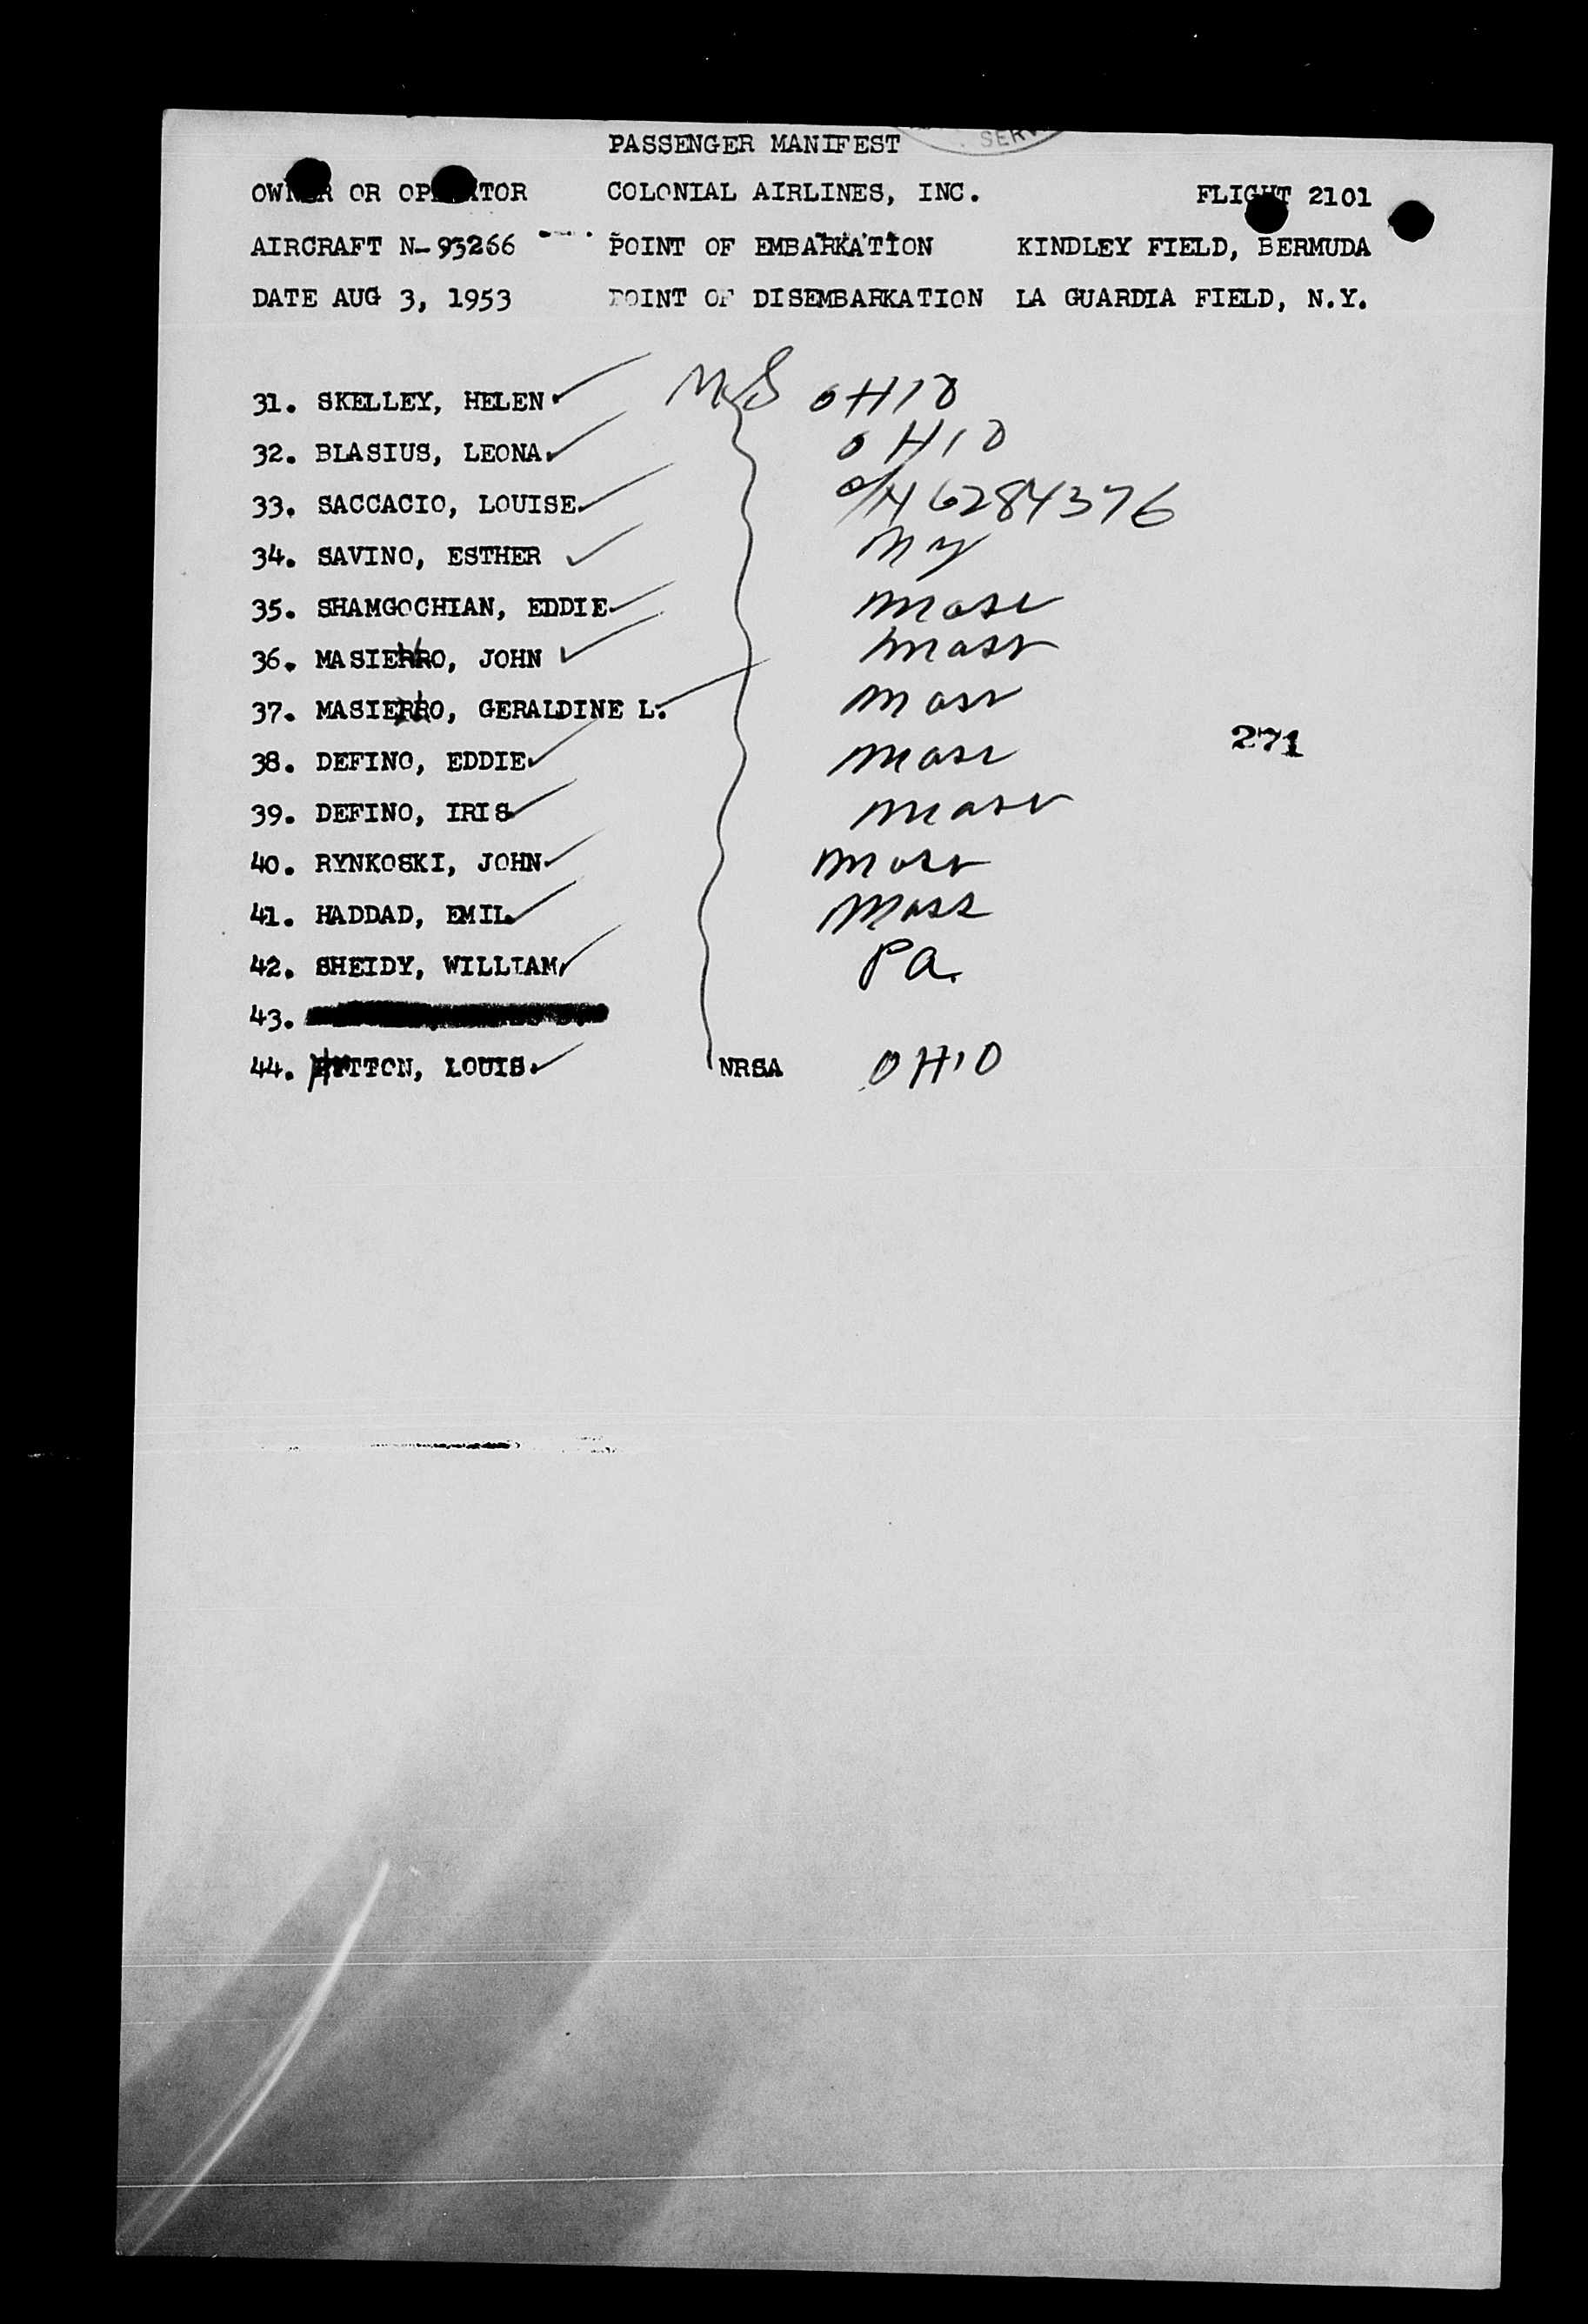 SERV
PASSENGER MANIFEST
OWNER OR OPERATOR COLONIAL AIRLINES, INC. FLIGHT 2101
AIRCRAFT N-93266 POINT OF EMBARKATION KINDLEY FIELD, BERMUDA
DATE AUG 3, 1953 POINT OF DISEMBARKATION LA GUARDIA FIELD, N.Y.
31. SKELLEY, HELEN OHIO
32. BLASIUS, LEONA OHIO
33. SACCACIO, LOUISE 6284376
34. SAVINO, ESTHER NY
35. SHAMGOCHIAN, EDDIE Mass
36. MASIERRO, JOHN Mass
37. MASIERRO, GERALDINE L. Mass
38. DEFINO, EDDIE Mass
271
39. DEFINO, IRIS Mass
40. RYNKOSKI, JOHN Mass
41. HADDAD, EMIL Mass
42. SHEIDY, WILLIAM Pa.
43.
44. LOUIS NRSA OHIO